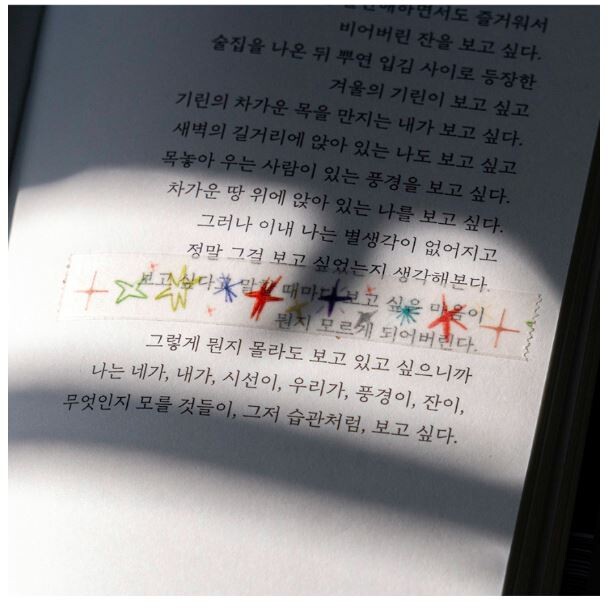 하면서도 즐거워서
비어버린 잔을 보고 싶다.
술집을 나온 뒤 뿌연 입김 사이로 등장한
겨울의 기린이 보고 싶고
기린의 차가운 목을 만지는 내가 보고 싶다.
새벽의 길거리에 앉아 있는 나도 보고 싶고
목놓아 우는 사람이 있는 풍경을 보고 싶다.
차가운 땅 위에 앉아 있는 나를 보고 싶다.
그러나 이내 나는 별생각이 없어지고
정말 그걸 보고 싶었는지 생각해본다.
보고 싶다고 말할 때마다 보고 싶은 마음이
뭔지 모르게 되어버린다.
그렇게 뭔지 몰라도 보고 있고 싶으니까
나는 네가, 내가, 시선이, 우리가, 풍경이, 잔이,
무엇인지 모를 것들이, 그저 습관처럼, 보고 싶다.